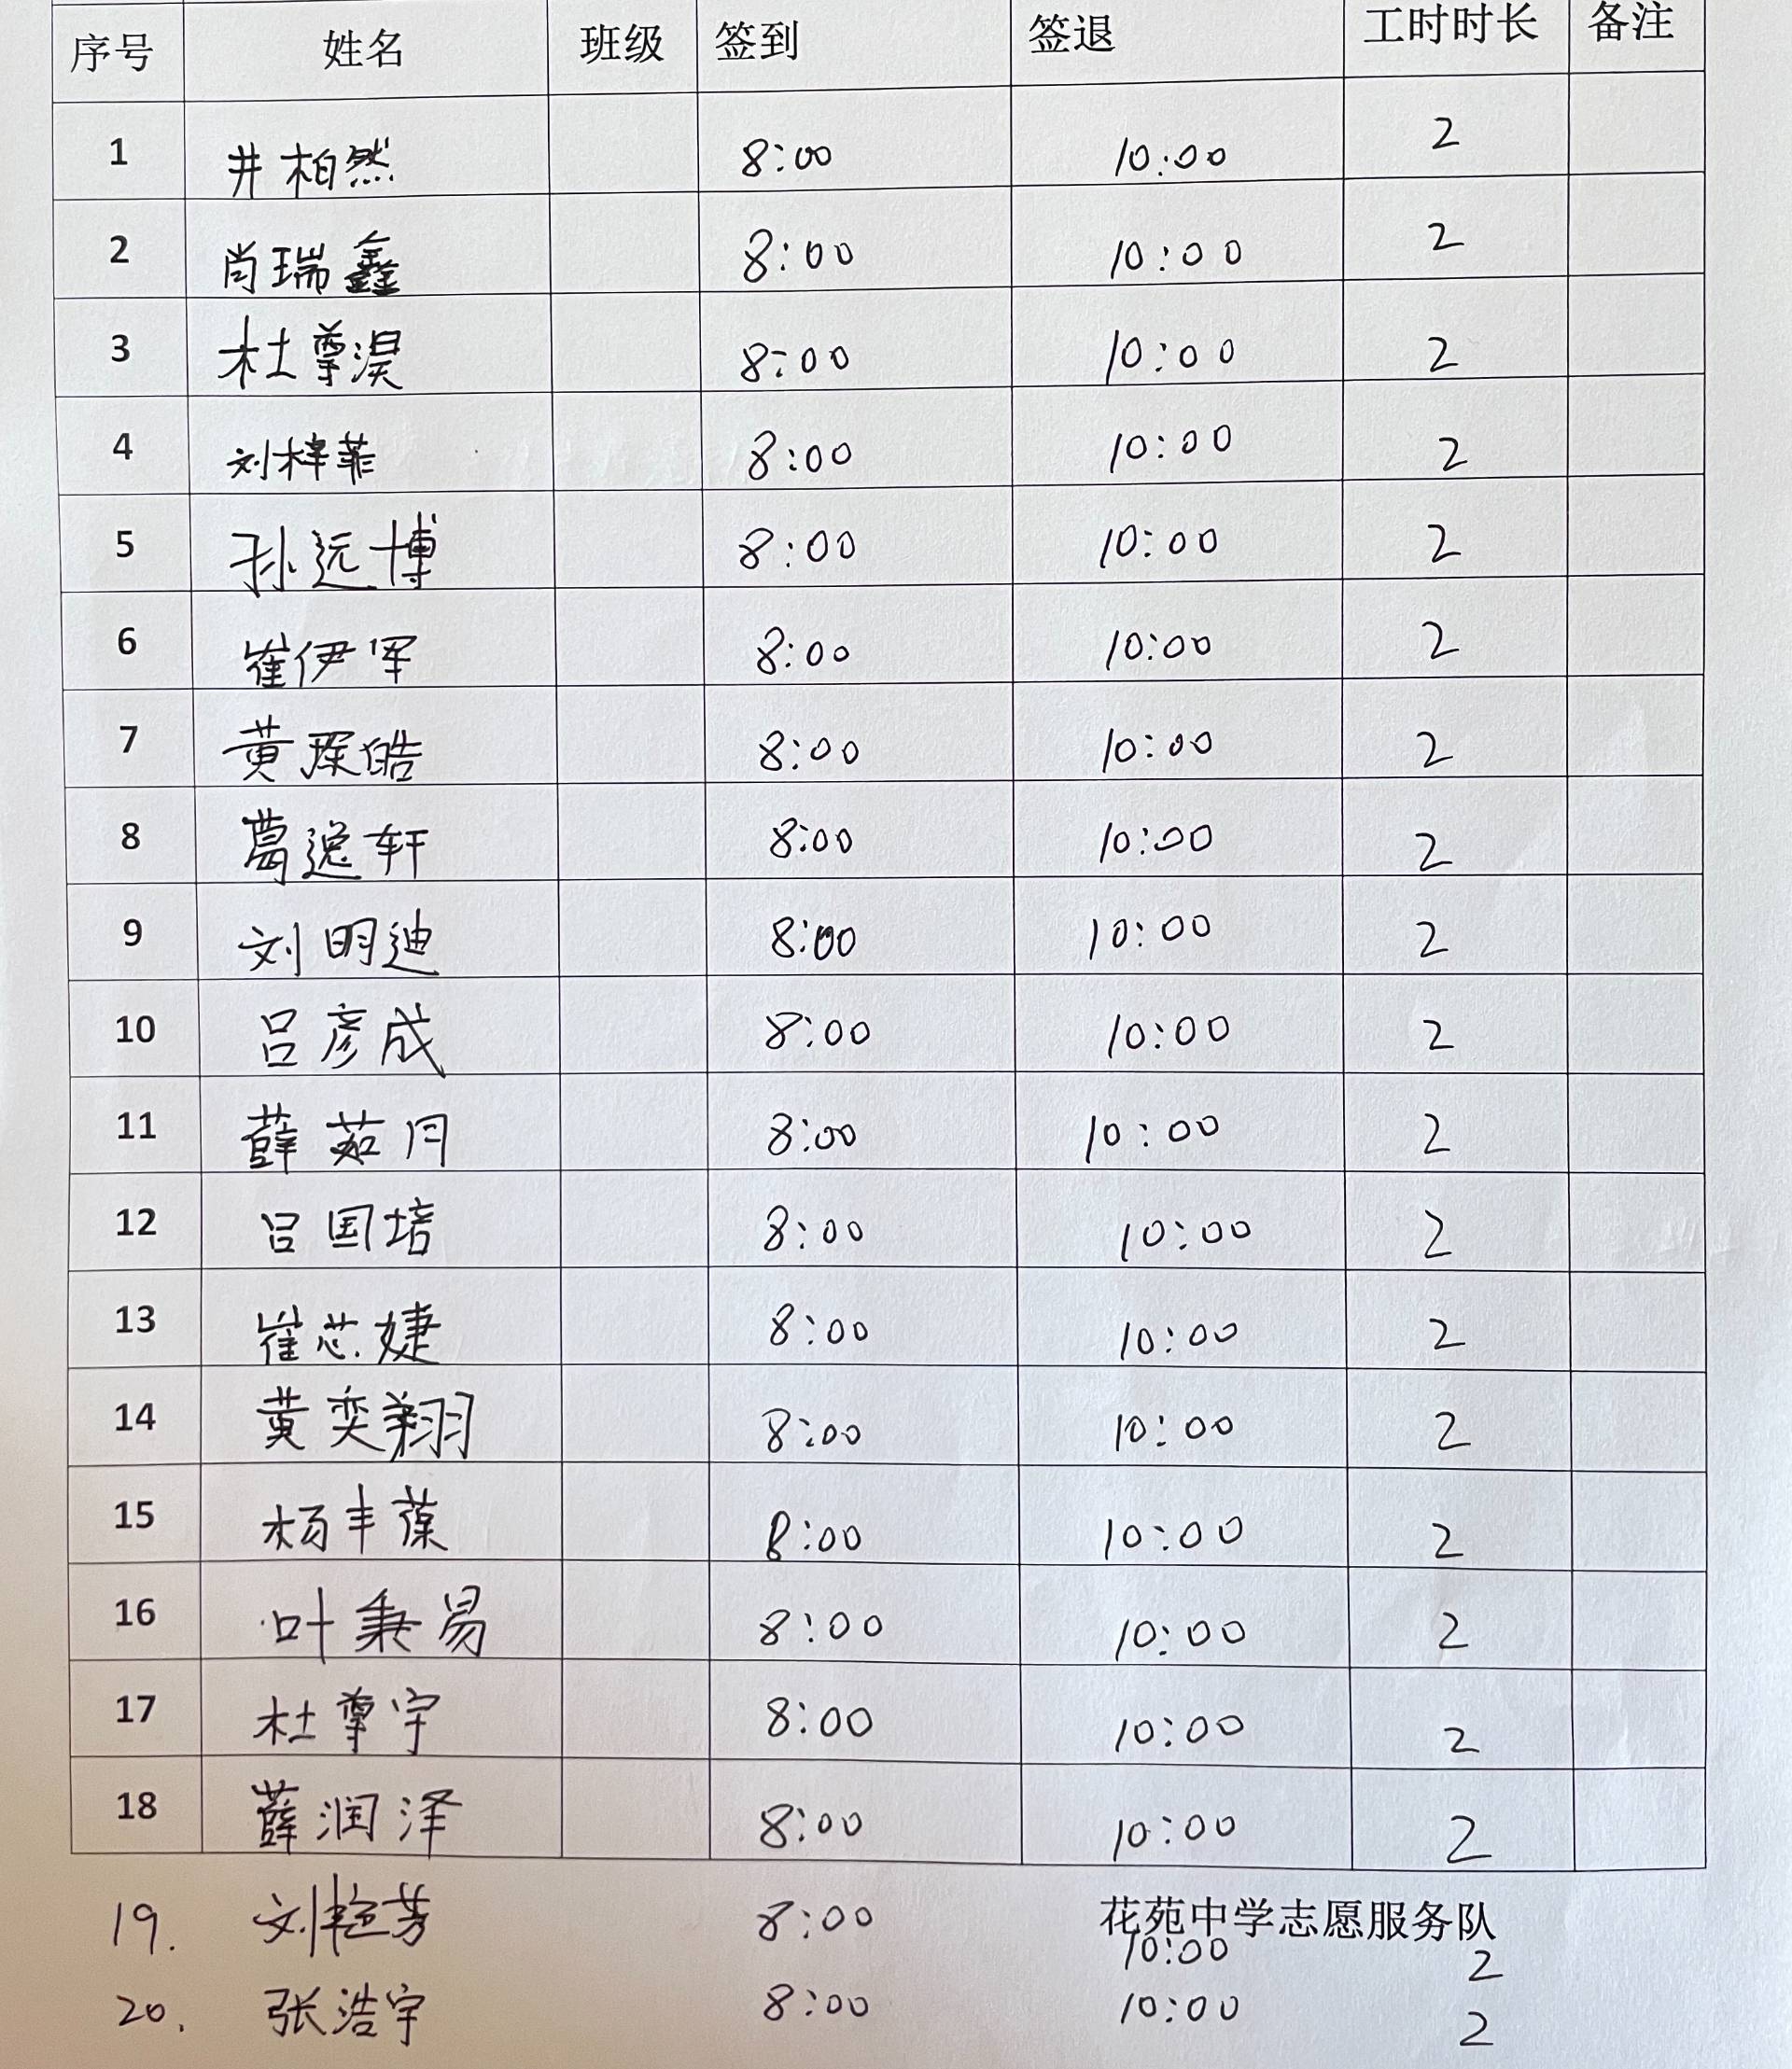 序号 姓名 班级 签到 签退 工时时长 备注
1 井柏然 8:00 10:00 2
2 肖瑞鑫 8:00 10:00 2
3 杜尊淏 8:00 10:00 2
4 刘梓菲 8:00 10:00 2
5 孙远博 8:00 10:00 2
6 崔伊 8:00 10:00 2
7 黄琛皓 8:00 10:00 2
8 葛逸轩 8:00 10:00 2
9 刘明迪 8:00 10:00 2
10 吕彦成 8:00 10:00 2
11 薛茹月 8:00 10:00 2
12 吕国培 8:00 10:00 2
13 崔芯婕 8:00 10:00 2
14 黄奕翔 8:00 10:00 2
15 杨丰葆 8:00 10:00 2
16 叶秉易 8:00 10:00 2
17 杜尊宇 8:00 10:00 2
18 薛润泽 8:00 10:00 2
花苑中学志愿服务队
19. 刘艳芳 8:00 10:00 2
20. 张浩宇 8:00 10:00 2